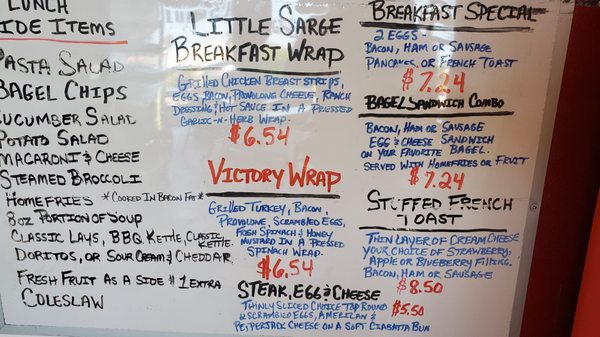 LUNCH
SIDE ITEMS
PASTA SALAD
BAGEL CHIPS
CUCUMBER SALAD
POTATO SALAD
MACARONI & CHEESE
STEAMED BROCCOLI
HOMEFRIES *COOKED IN BACON FAT*
8OZ PORTION OF SOUP
CLASSIC LAYS, BBQ KETTLE, CLASSIC
KETTLE.
DORITOS, OR SOUR CREAM & CHEDDAR
FRESH FRUIT AS A SIDE $1 EXTRA
COLESLAW
LITTLE SARGE
BREAKFAST WRAP
GRILLED CHICKEN BREAST STRIPS,
EGGS, BACON, PROVOLONE CHEESE, RANCH
DRESSING & HOT SAUCE IN A PRESSED
GARLIC-N-HERB WRAP.
$6.54
VICTORY WRAP
GRILLED TURKEY, BACON,
PROVOLONE, SCRAMBLED EGGS,
FRESH SPINACH & HONEY
MUSTARD IN A PRESSED
SPINACH WRAP.
$6.54
STEAK, EGG & CHEESE
THINLY SLICED CHOICE TOP ROUND $5.50
& SCRAMBLED EGGS, AMERICAN &
PEPPERJACK CHEESE ON A SOFT CIABATTA BUN
BREAKFAST SPECIAL
2 EGGS -
BACON, HAM OR SAUSAGE
PANCAKES, OR FRENCH TOAST
$7.24
BAGEL SANDWICH COMBO
BACON, HAM OR SAUSAGE
EGG & CHEESE SANDWICH
ON YOUR FAVORITE BAGEL.
SERVED WITH HOMEFRIES OR FRUIT
$7.24
STUFFED FRENCH
TOAST
THIN LAYER OF CREAM CHEESE
YOUR CHOICE OF STRAWBERRY,
APPLE OR BLUEBERRY FILLING.
BACON, HAM OR SAUSAGE
$8.50